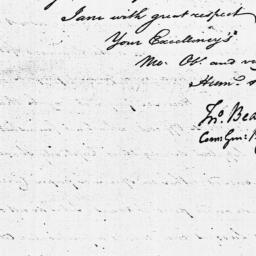 I am with great respect
Your Excellency's
Mo. Ob. and
Hum.
Jn.o Bea
Com.y Gen.l